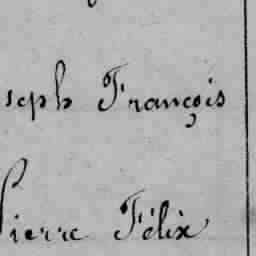 seph François
Pierre Félix